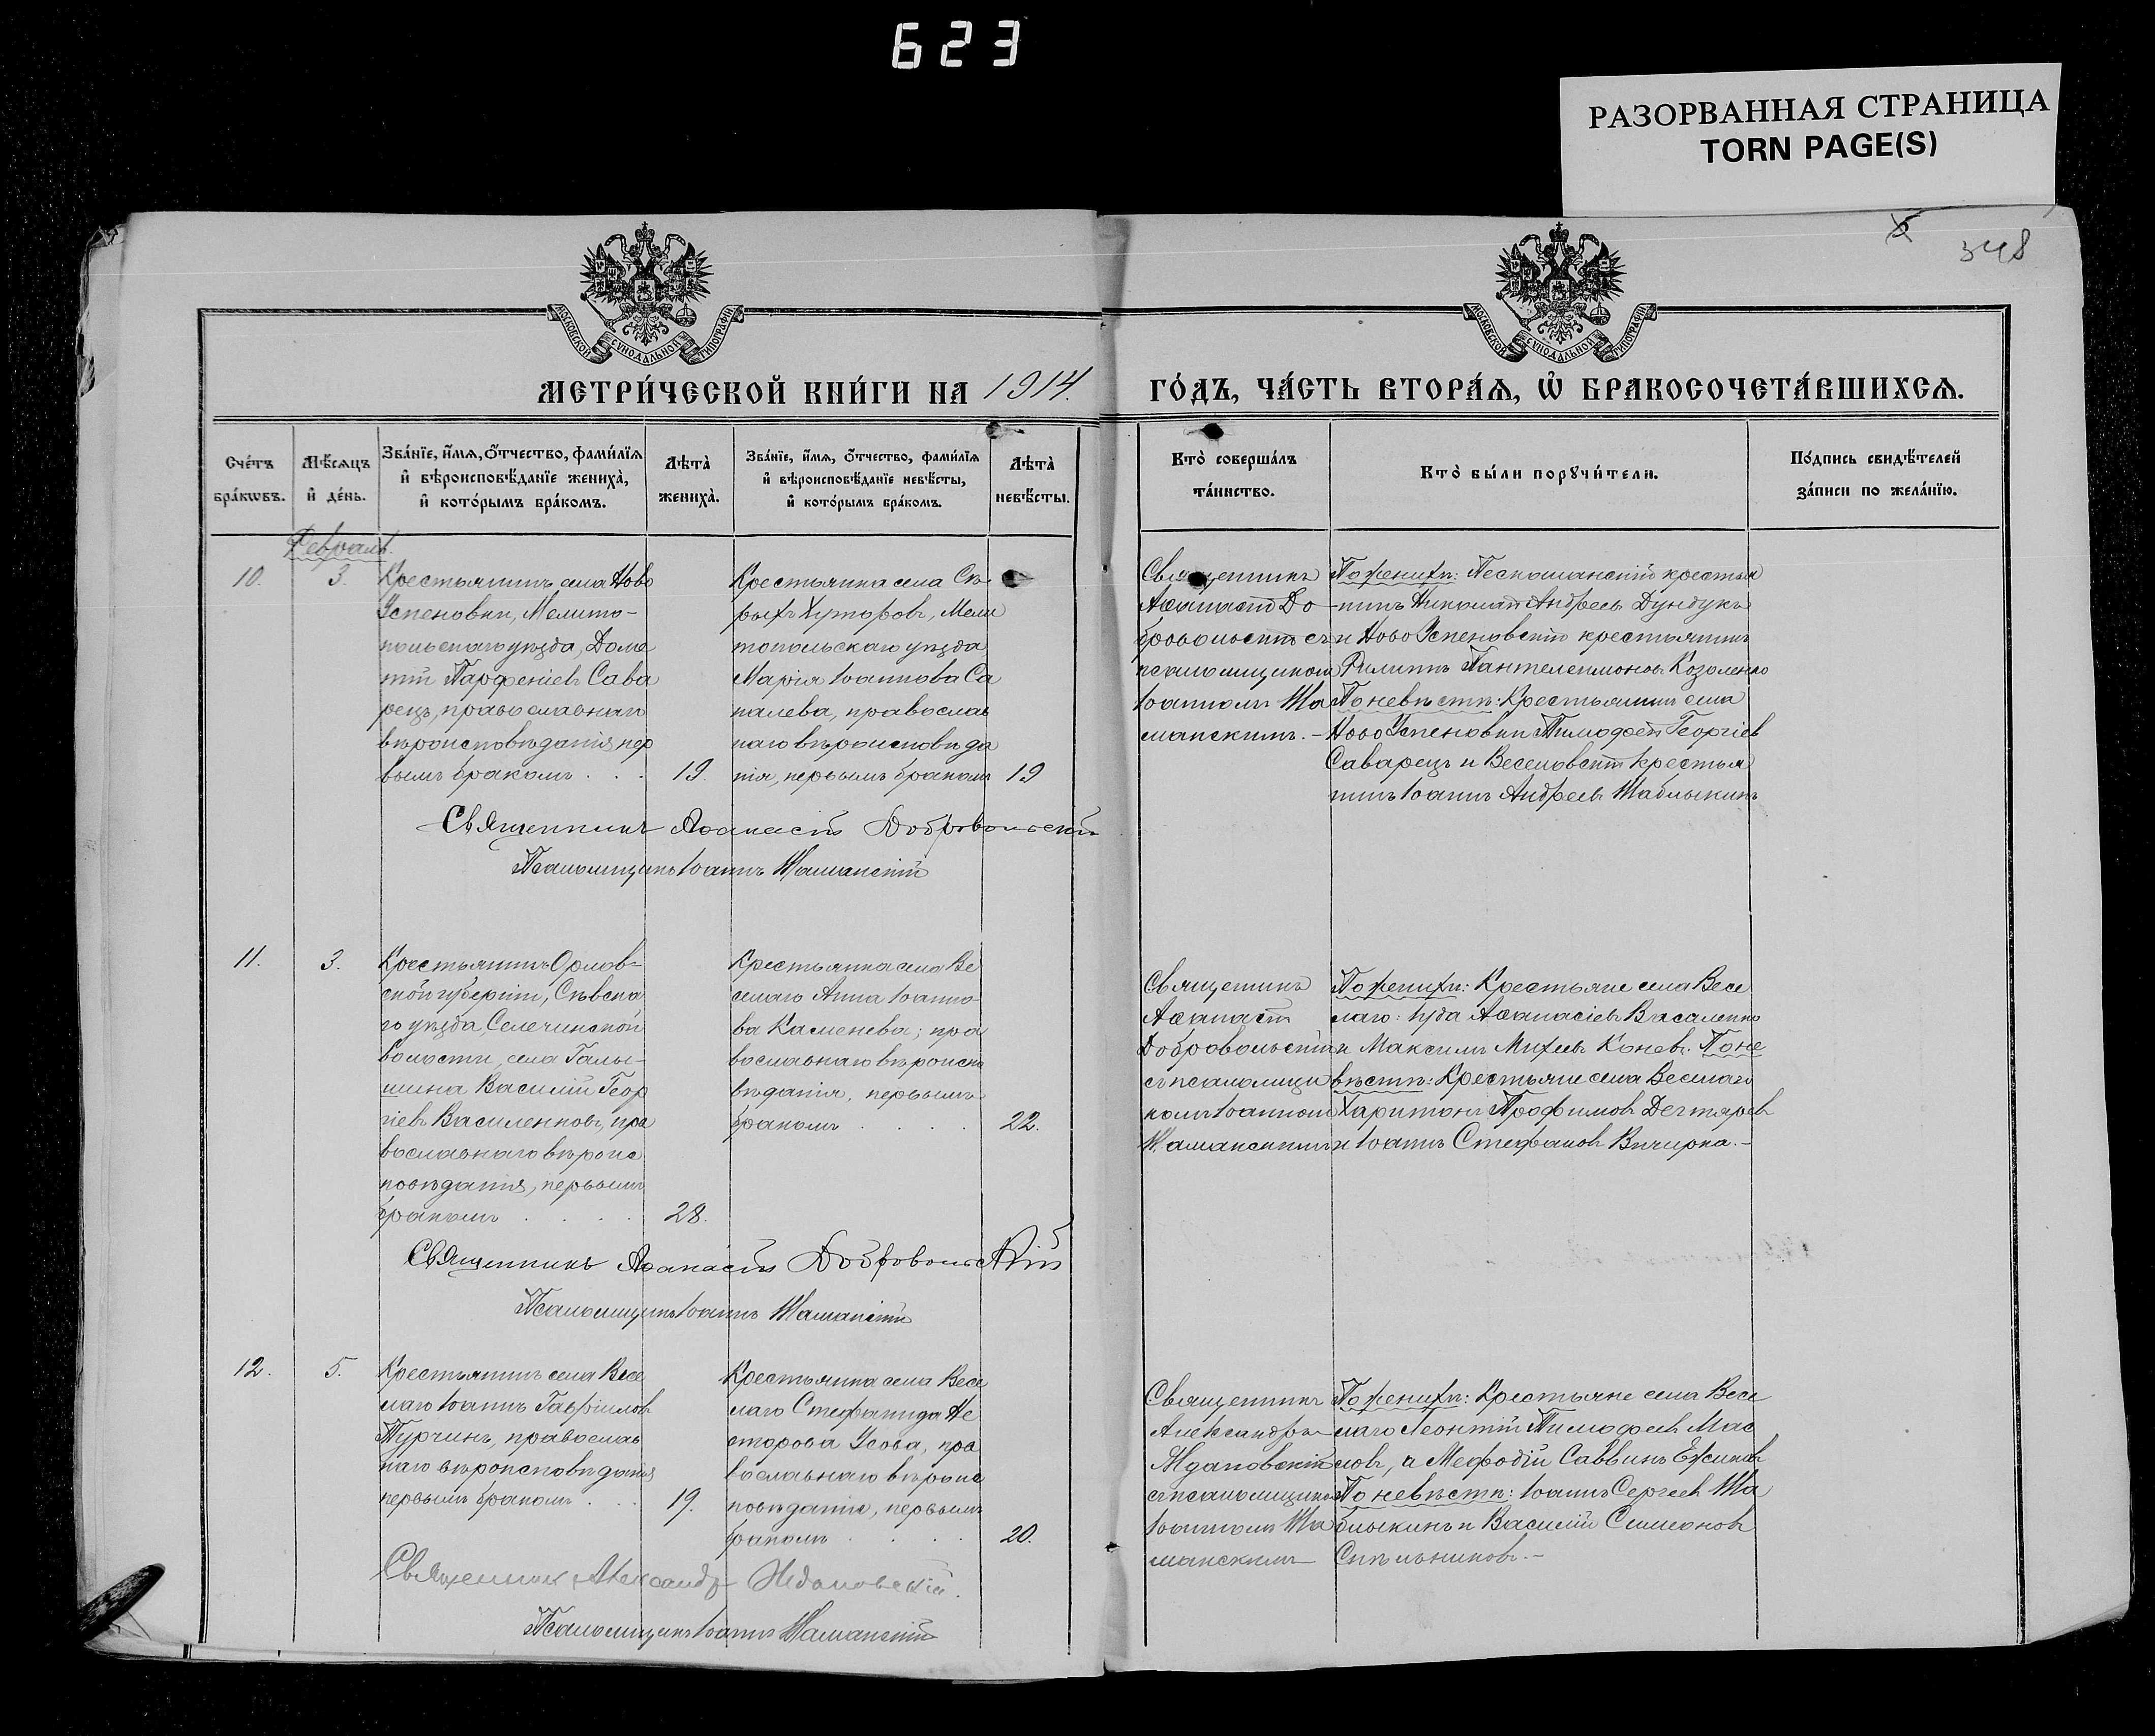 623
РАЗОРВАННАЯ СТРАНИЦА
TORN PAGE(S)
348
МОСКОВСКОЙ СѴНОДАЛЬНОЙ ТИПОГРАФІИ
МОСКОВСКОЙ СѴНОДАЛЬНОЙ ТИПОГРАФІИ
МЕТРИ́ЧЕСКОЙ КНИ́ГИ НА 1914. ГО́ДЪ, ЧА́СТЬ ВТОРА́Я, Ѡ҆ БРАКОСОЧЕТА́ВШИХСѦ.
Сче́тъ
бра́кѡвъ.
Мѣ́сяцъ
и҆ де́нь.
Зва́нїе, и҆́мя, ѻ҆́тчество, фами́лїя
и҆ вѣроисповѣ́данїе жениха̀,
и҆ кото́рымъ бра́комъ.
Лѣта̀
жениха̀.
Зва́нїе, и҆́мя, ѻ҆́тчество, фами́лїя
и҆ вѣроисповѣ́данїе невѣ́сты,
и҆ кото́рымъ бра́комъ.
Лѣта̀
невѣ́сты.
Кто̀ соверша́лъ
та́инство.
Кто̀ бы́ли порꙋчи́тели.
По́дпись свидѣ́телей
за́писи по жела́нїю.
Февраль.
10.
3.
Крестьянинъ села Ново
Успеновки, Мелито-
польскаго уѣзда, Доме
тій Парфеніевъ Сава
рецъ, православнаго
вѣроисповѣданія, пер
вымъ бракомъ . . .
19.
Крестьянка села Сѣ-
рыхъ Хуторовъ, Мели
топольскаго уѣзда
Марія Іоаннова Са
палева, православ
наго вѣроисповѣда
нія, первымъ бракомъ
19
Священникъ
Аѳанасій До-
бровольскій съ
псаломщикомъ
Іоанномъ Ша
манскимъ. -
По женихѣ: Песчоманскій крестья
нинъ Николай Андреевъ Дундукъ
и Ново Успеновскій крестьянинъ
Филиппъ Пантелеимоновъ Козоленко
По невѣстѣ: Крестьянинъ села
Ново Успеновки Тимофей Георгіевъ
Саварецъ и Веселовскій крестья
нинъ Іоаннъ Андреевъ Шаблыкинъ
Священникъ Аѳанасій Добровольскій
Псаломщикъ Іоаннъ Шаманскій
11.
3.
Крестьянинъ Орлов-
ской губерніи, Сѣвска
го уѣзда, Селечинской
волости, села Галы-
шина Василій Геор
гіевъ Василенковъ, пра
вославнаго вѣроис
повѣданія, первымъ
бракомъ . . . .
28.
Крестьянка села Ве
селаго Анна Іоанно-
ва Каменева; пра
вославнаго вѣроиспо
вѣданія, первымъ
бракомъ . . . .
22.
Священникъ
Аѳанасій
Добровольскій
съ псаломщи
комъ Іоанномъ
Шаманскимъ
По женихѣ: Крестьяне села Весе
лаго: Іуда Аѳанасіевъ Василенко
и Максимъ Михеевъ Коневъ. По не
вѣстѣ: Крестьяне села Веселаго
Харитонъ Трофимовъ Дегтяревъ
и Іоаннъ Стефановъ Вичирка. -
Священникъ Аѳанасій Добровольскій
Псаломщикъ Іоаннъ Шаманскій
12.
5.
Крестьянинъ села Весе
лаго Іоаннъ Гавріиловъ
Турчинъ, православ
наго вѣроисповѣданія
первымъ бракомъ . . .
19.
Крестьянка села Весе
лаго Стефанида Не
сторова Усова, пра
вославнаго вѣроис
повѣданія, первымъ
бракомъ . . . .
20.
Священникъ
Александръ
Ждановскій
съ псаломщикомъ
Іоанномъ Ша
манскимъ
По женихѣ: Крестьяне села Весе
лаго Леонтій Тимофеевъ Мас
ловъ, и Мефодій Саввинъ Ежиковъ
По невѣстѣ: Іоаннъ Сергеевъ Ша
блыкинъ и Василій Симеоновъ
Сипельниковъ. -
Священник Александр Ждановскій.
Псаломщикъ Іоаннъ Шаманскій